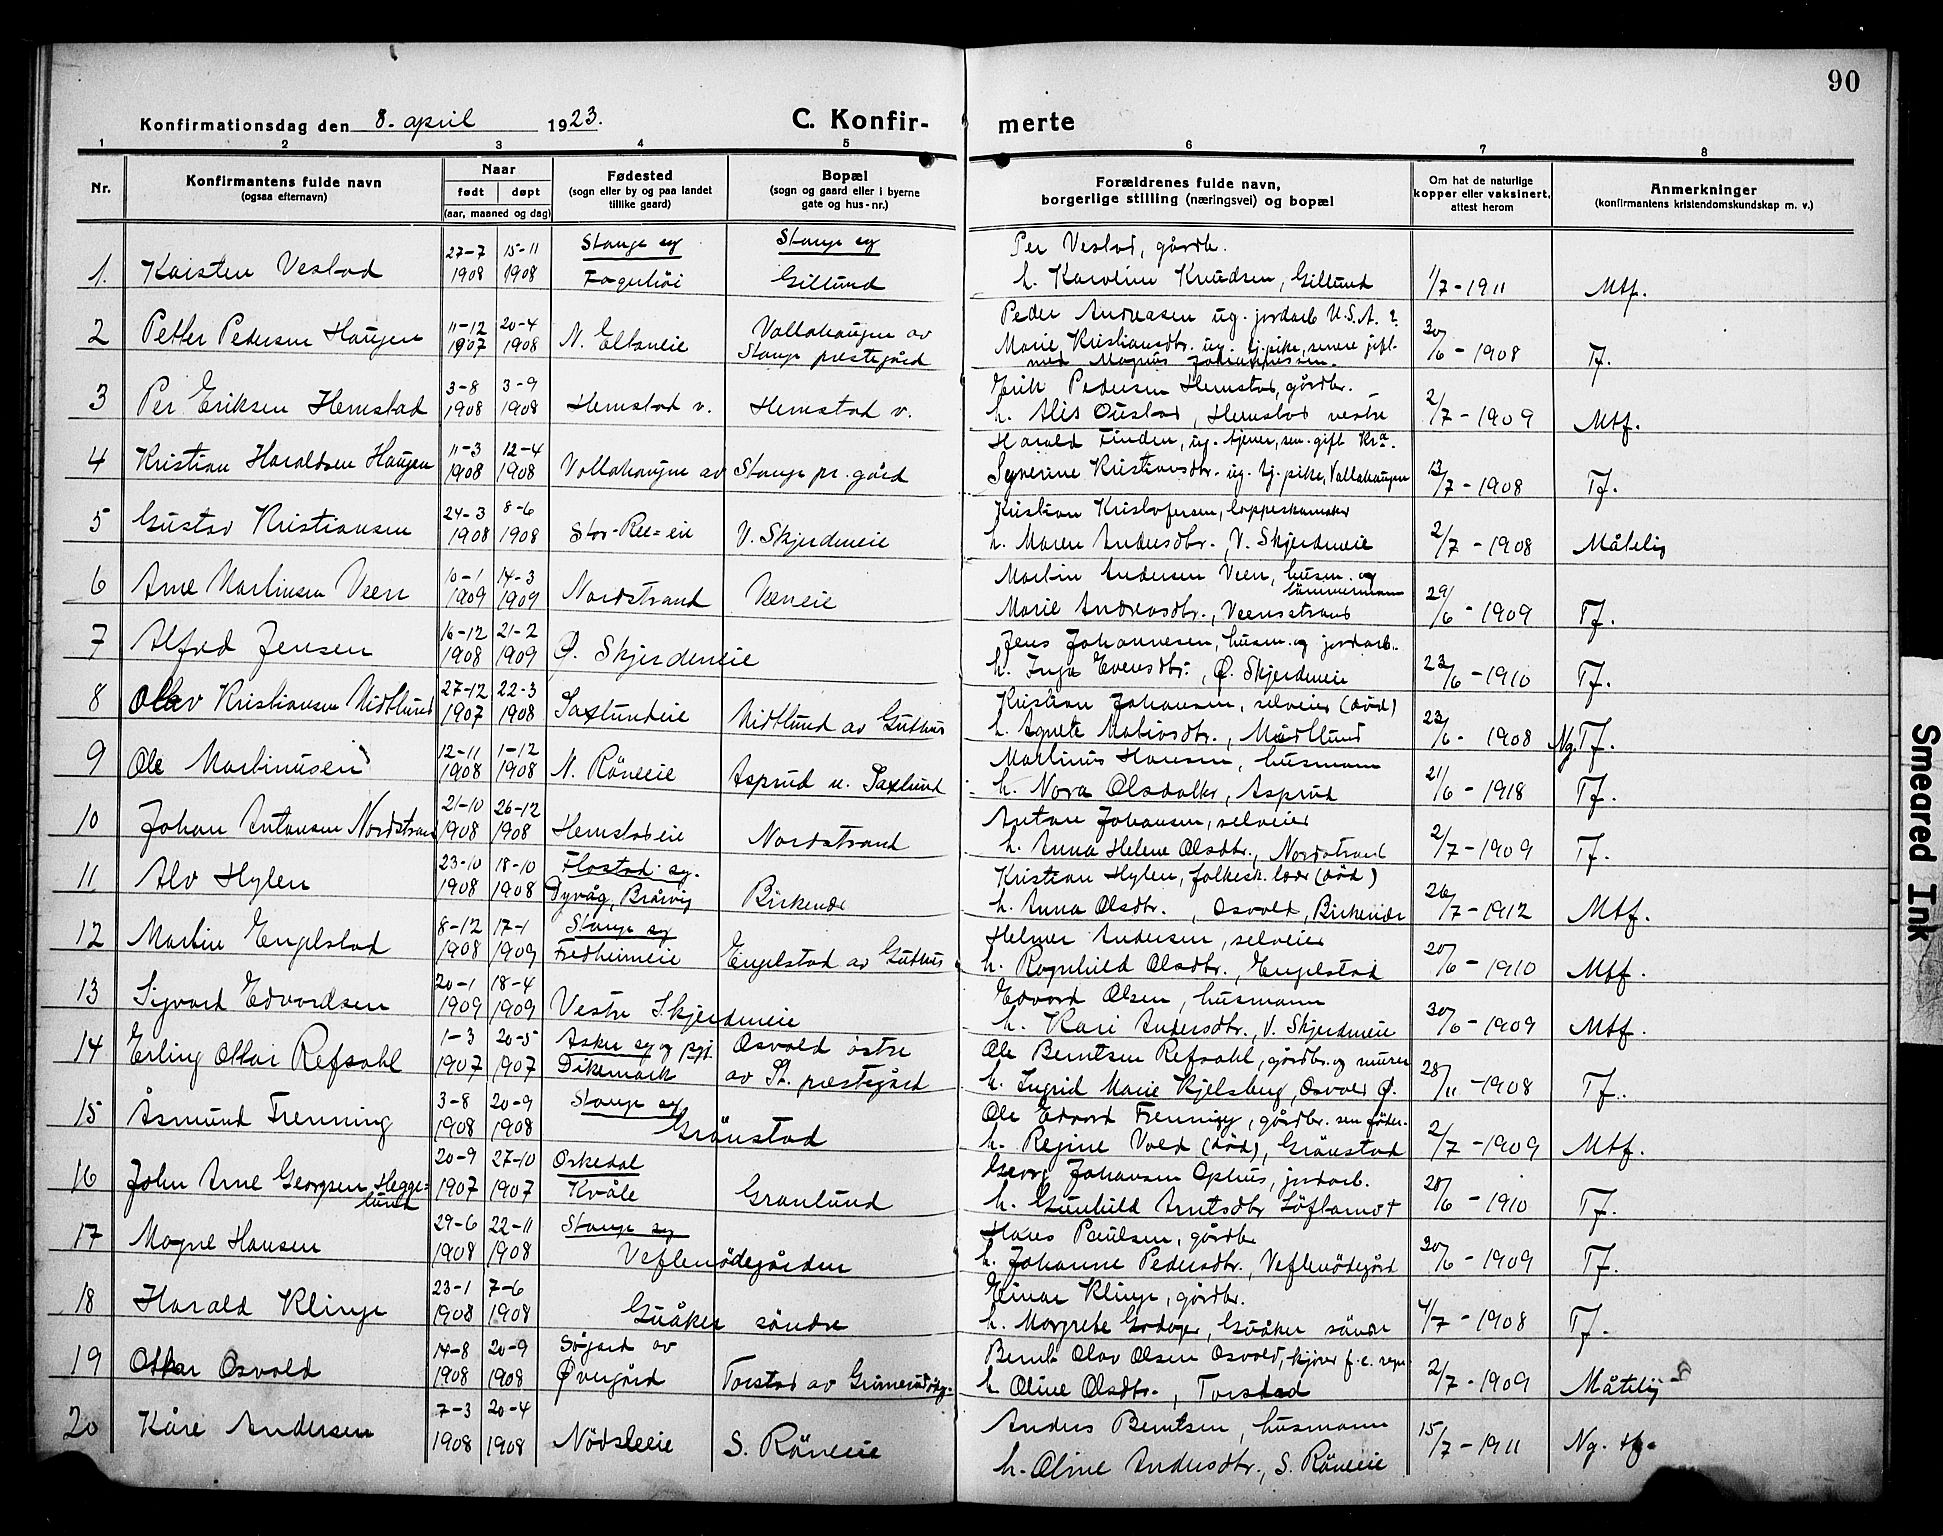 90
Konfirmationsdag den 8. april 1923.
C. Konfir- merte
1 2 3 4 5 6 7 8
Nr.
Konfirmantens fulde navn
(ogsaa efternavn)
Naar
født døpt
(aar, maaned og dag)
Fødested
(sogn eller by og paa landet
tillike gaard)
Bopæl
(sogn og gaard eller i byerne
gate og hus-nr.)
Forældrenes fulde navn,
borgerlige stilling (næringsvei) og bopæl
Om hat de naturlige
kopper eller vaksinert,
attest herom
Anmerkninger
(konfirmantens kristendomskundskap m. v.)
27-7 15-11 Stange sg Stange sg Per Vestad, gårdb.
1. Karsten Vestad 1908 1908 Fagerhøi Gillund h. Karoline Knudsen, Gillund 1/7-1911 Mtf.
11-12 20-4 Vollahaugen av Peder Andreasen ug. jordarb U.S.A. ?
2 Petter Pedersen Haugen 1907 1908 N. Ellaneie Stange prestegård Marie Kristiansdtr. ug. tj.pike, senere gift 30/6-1908 Tf.
med Magnus Johannessen.
3-8 3-9 Erik Pedersen Hemstad, gårdbr.
3 Per Eriksen Hemstad 1908 1908 Hemstad v. Hemstad v. h. Alis Oustad, Hemstad vestre 2/7-1909 Mtf.
11-3 12-4 Harald Linden, ug. tjener, sen. gift Kra.
4 Kristian Haraldsen Haugen 1908 1908 Vollahaugen av Stange pr. gård Severine Kristiansdtr. ug. tj. pike, Vollahaugen 13/7-1908 Tf.
24-3 8-6 Kristian Kristofersen,
5 Gustav Kristiansen 1908 1908 Stor-Ree=eie V. Skjerdeneie h. Maren Andersdtr., V. Skjerdeneie 2/7-1908 Måtelig
10-1 14-3 Martin Andersen Veen, husm. og
tømmermann
6 Arne Martinsen Veen 1909 1909 Nordstrand Veeneie Marie Andreasdtr., Veensstrand 29/6-1909 Tf.
16-12 21-2 Jens Johannesen, husm. og jordarb.
7 Alfred Jensen 1908 1909 Ø. Skjerdeneie h. Inga Evensdtr., Ø. Skjerdeneie 23/6-1910 Tf.
27-12 22-3 Kristian Johansen, selveier (død)
8 Olav Kristiansen Midtlund 1907 1908 Saxlundeie Midtlund av Guthus h. Agnete Matiasdtr., Midtlund 23/6-1908 Ng Tf.
12-11 1-12 Martinus Hansen, husmann
9 Ole Martinusen 1908 1908 N. Røneeie Asprud u. Saxlund h. Nora Olsdatter, Asprud 21/6-1918 Tf.
21-10 26-12 Anton Johansen, selveier
10 Johan Antonsen Nordstrand 1908 1908 Hemstadeie Nordstrand h. Anna Helene Olsdtr., Nordstrand 2/7-1909 Tf.
23-10 18-10 Flostad sg. Kristian Hylen, folkesk. lær (død)
11 Alv Hylen 1908 1908 Dyvåg, Bråsvig Birkenæs h. Anna Olsdtr., Osvold, Birkenæs 26/7-1912 Mtf.
8-12 17-1 Stange sg Helmer Andersen, selveier
12 Martin Engelstad 1908 1909 Fredheimeie Engelstad av Guthus h. Ragnhild Olsdtr., Engelstad 20/6-1910 Mtf.
20-1 18-4 Edvard Olsen, husmann
13 Sigvard Edvardsen 1909 1909 Vestre Skjerdeneie h. Kari Andersdtr., V. Skjerdeneie 30/6-1909 Mtf.
1-3 20-5 Asker sg og pgt. Osvold østre Ole Berntsen Refsahl, gårdbr. og murer
14 Erling Ottar Refsahl 1907 1907 Dikemark av St. prestegård h. Ingrid Marie Kjelsberg, Osvold Ø. 28/11-1908 Tf.
3-8 20-9 Stange sg Ole Edvard Frenning, gårdbr. sen føder.
15 Åsmund Frenning 1908 1908 Grønstad h. Regine Vold (død), Grønstad 2/7-1909 Mtf.
20-9 27-10 Orkedal Georg Johansen Ophus, jordarb.
16 John Arne Georgsen Hegge= 1907 1907 Kvåle Granlund h. Gunhild Arntsdtr 28/6-1910 Tf.
lund
29-6 22-11 Stange sg Hans Paulsen, gårdbr
17 Magne Hansen 1908 1908 Veflenødegården h. Johanne Pedersdtr., Veflenødegård 20/6-1909 Tf.
23-1 7-6 Einar Klinge, gårdbr.
18 Harald Klinge 1908 1908 Guåker søndre h. Margrete Godager, Guåker søndre 4/7-1908 Tf.
14-8 20-9 Søgard av Bernt Olav Olsen Osvold, kjører
19 Ottar Osvold 1908 1908 Øvergård Torstad av Grimerudødg. h Oline Olsdtr., Torstad 2/7-1909 Måtelig
7-3 20-4 Anders Berntsen, husmann
20 Kåre Andersen 1908 1908 Nødsleeie S. Røneeie h. Oline Andersdtr., S. Røneeie 15/7-1911 Ng. tf.
Smeared Ink